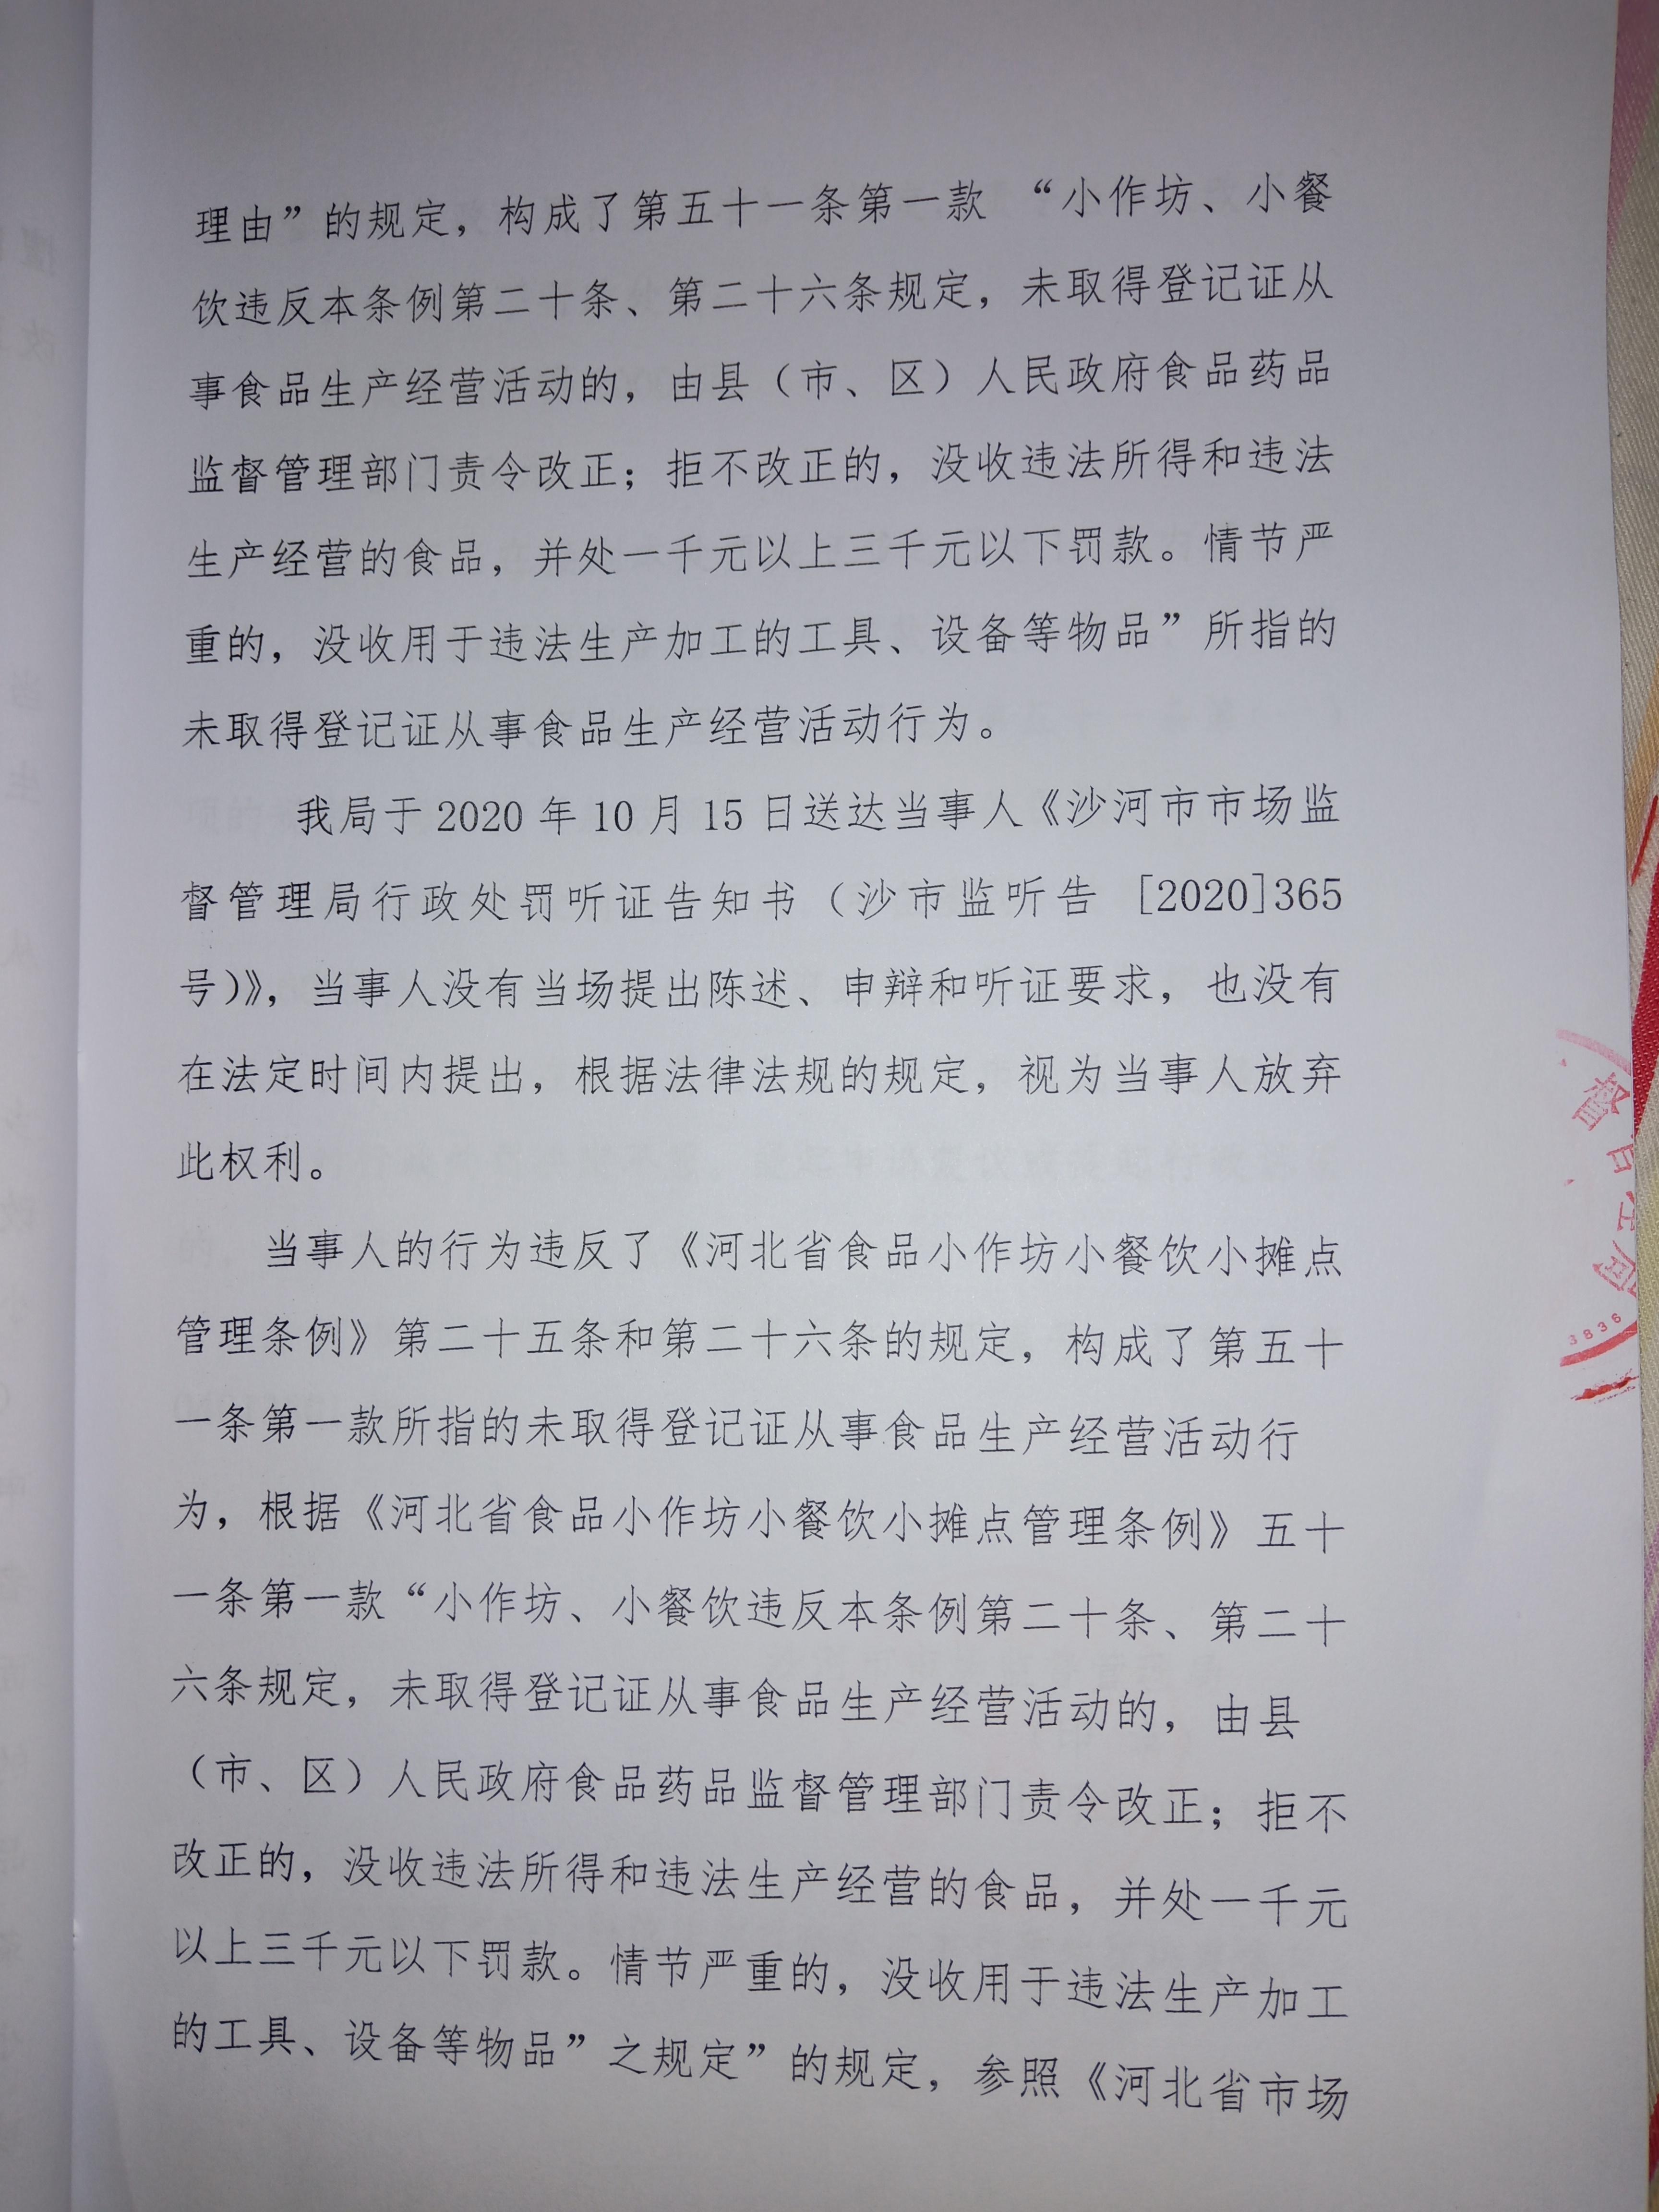 理由”的规定，构成了第五十一条第一款 “小作坊、小餐
饮违反本条例第二十条、第二十六条规定，未取得登记证从
事食品生产经营活动的，由县（市、区）人民政府食品药品
监督管理部门责令改正；拒不改正的，没收违法所得和违法
生产经营的食品，并处一千元以上三千元以下罚款。情节严
重的，没收用于违法生产加工的工具、设备等物品”所指的
未取得登记证从事食品生产经营活动行为。
我局于 2020 年 10 月 15 日送达当事人《沙河市市场监
督管理局行政处罚听证告知书（沙市监听告 [2020]365
号)》，当事人没有当场提出陈述、申辩和听证要求，也没有
在法定时间内提出，根据法律法规的规定，视为当事人放弃
此权利。
当事人的行为违反了《河北省食品小作坊小餐饮小摊点
管理条例》第二十五条和第二十六条的规定，构成了第五十
一条第一款所指的未取得登记证从事食品生产经营活动行
为，根据《河北省食品小作坊小餐饮小摊点管理条例》五十
一条第一款“小作坊、小餐饮违反本条例第二十条、第二十
六条规定，未取得登记证从事食品生产经营活动的，由县
（市、区）人民政府食品药品监督管理部门责令改正；拒不
改正的，没收违法所得和违法生产经营的食品，并处一千元
以上三千元以下罚款。情节严重的，没收用于违法生产加工
的工具、设备等物品”之规定”的规定，参照《河北省市场
督
局
3836